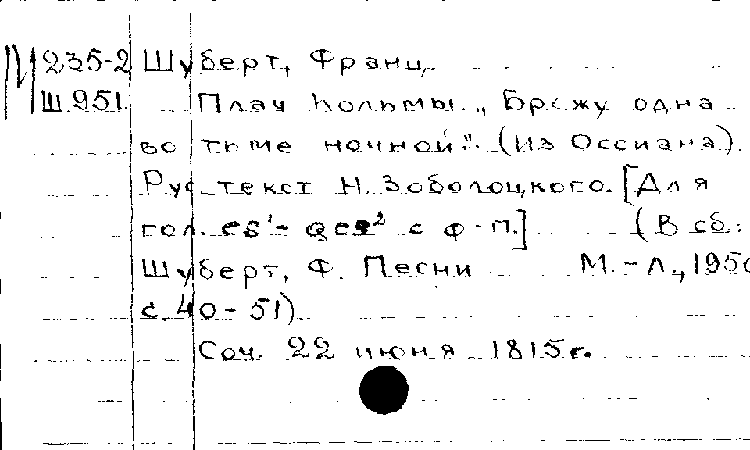 М 235-2 Шуберт, Франц.
Ш 951 Плач Кольмы. „Брожу одна
во тьме ночной". (Из Оссиана).
Рус. текст Н. Заболоцкого. [Для
гол. es¹- ges² с ф-п.] (В сб.:
Шуберт, Ф. Песни М.-Л., 1950
с. 40-51)
Соч. 22 июня 1815 г.